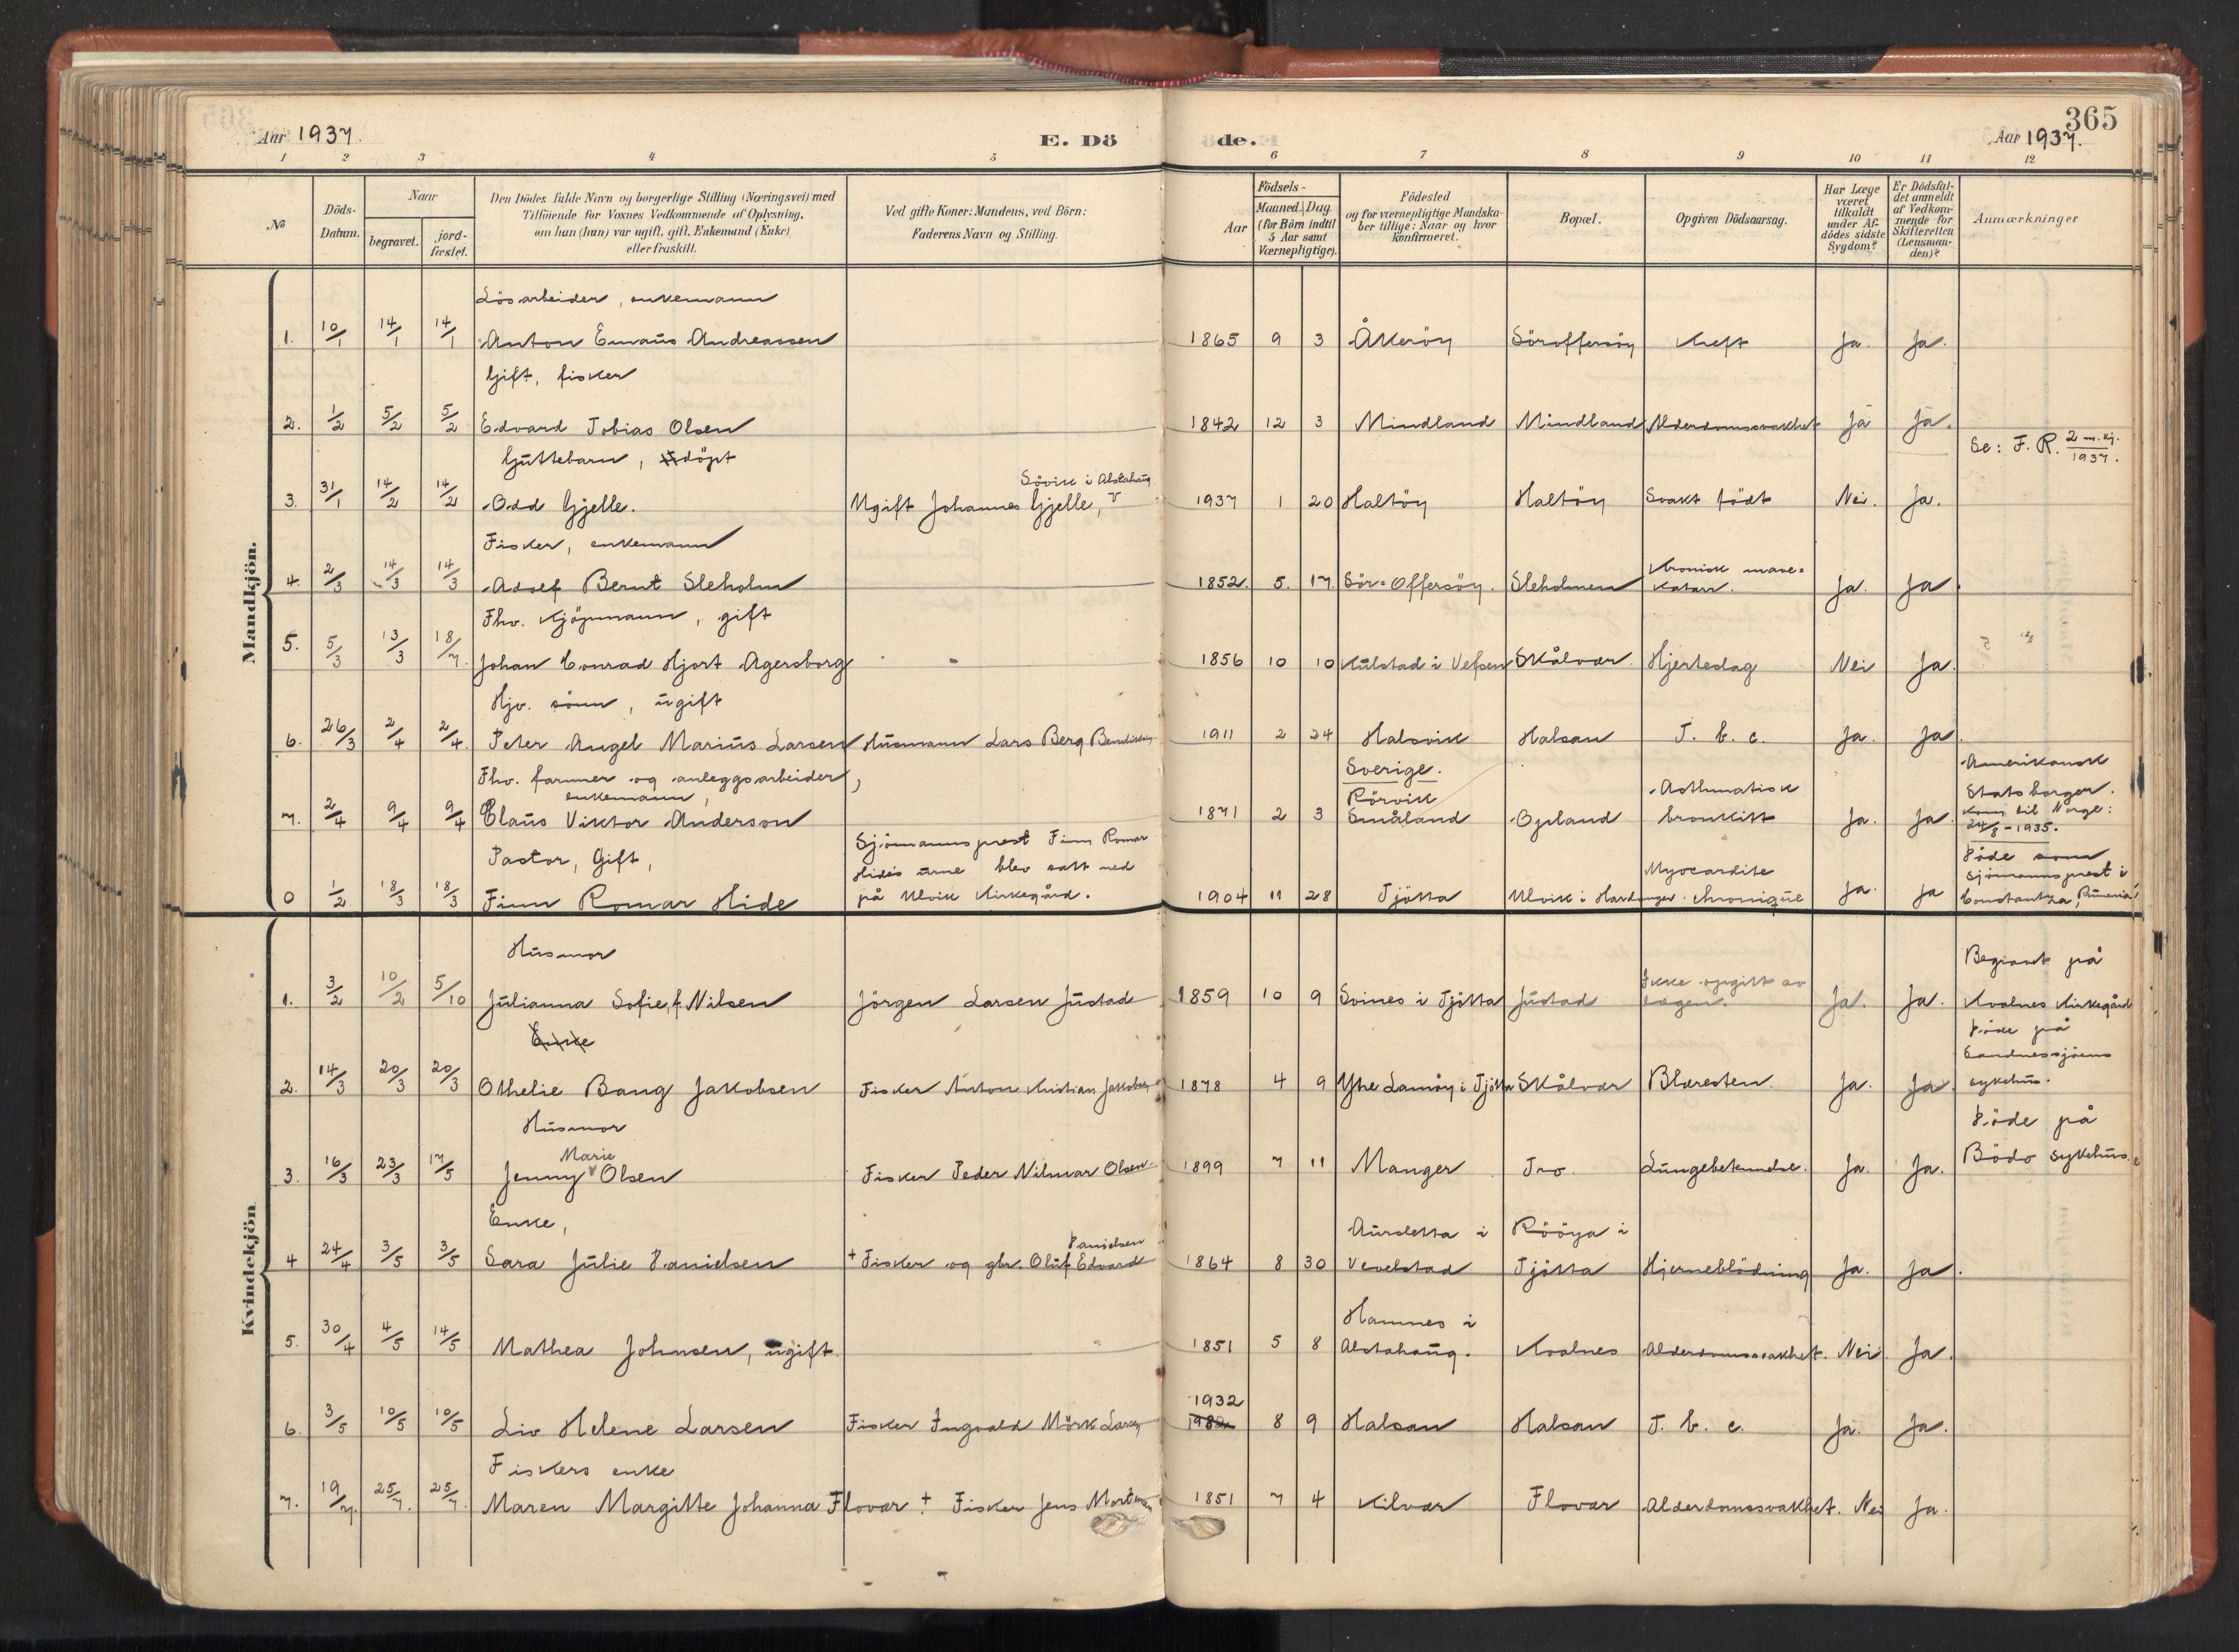 365
Aar 1937.
E. Dö
de.
Aar 1937.
1 2 3 4 5 6 7 8 9 10 11 12
No
Döds-
Datum.
Naar
begravet.
jord-
fæstet.
Den Dödes fulde Navn og borgerlige Stilling (Næringsvei) med
Tilföiende for Voxnes Vedkommende af Oplysning,
om han (hun) var ugift, gift, Enkemand (Enke)
eller fraskilt.
Ved gifte Koner: Mandens, ved Börn:
Faderens Navn og Stilling.
Födsels-
Aar
Maaned. Dag.
(for Börn indtil
5 Aar samt
Værnepligtige).
Födested
og for værnepligtige Mandska-
ber tillige: Naar og hvor
konfirmeret.
Bopæl.
Opgiven Dödsaarsag.
Har Læge
været
tilkaldt
under Af-
dödes sidste
Sygdom?
Er Dödsfal-
det anmeldt
af Vedkom-
mende for
Skifteretten
(Lensman-
den)?
Anmærkninger
Mandkjön.
Lösarbeider, enkemann
1. 10/1 14/1 14/1 Anton Emaus Andreassen 1865 9 3 Åkeröy Söroffersöy Kreft Ja. Ja.
Gift, fisker
2. 1/2 5/2 5/2 Edvard Tobias Olsen 1842 12 3 Mindland Mindland Alderdomssvakhet Ja Ja.
Guttebarn, döpt
Sövik i Alstahaug
Se: F. R. 2 m. kj. 1937.
3. 31/1 14/2 14/2 Odd Gjelle. Ugift Johannes Gjelle, 1937 1 20 Haltöy Haltöy Svakt födt Nei. Ja.
Fisker, enkemann
Kronisk mave=
4. 2/3 14/3 14/3 Adolf Bernt Sleholm 1852. 5. 17. Sör=Offersöy. Sleholmen Katarr. Ja. Ja.
Fhv. Kjöpmann, gift
5. 5/3 13/3 18/7. Johan Conrad Hjort Agersborg 1856 10 10 Kulstad i Vefsen Skålvær. Hjerteslag Nei Ja.
Hjv. sönn, ugift
6. 26/3 2/4 2/4. Peter Angel Marius Larsen Husmann Lars Berg Bendiksen 1911 2 24 Halsvik Halsan T. b. c. Ja. Ja.
Fhv. farmer og anleggsarbeider,
enkemann,
Sverige.
Rörvik
Asthmatisk
Amerikansk
Statsborger.
7. 2/4 9/4 9/4 Claus Viktor Anderson 1871 2 3 Småland Opland bronkitt Ja. Ja.
Kom til Norge:
24/8-1935.
Pastor, Gift,
Sjömannsprest Finn Romar
Hides urne blev satt ned
på Ulvik Kirkegård.
Myocardite
0 1/2 18/3 18/3 Finn Romar Hide 1904 11 28 Tjötta Ulvik i Hardanger. chronique Ja. Ja
Döde som
Sjömannsprest i
Constantza, Rumenia!
Kvindekjön
Husmor
Ikke opgitt av
Begravet på
1. 3/2 10/2 5/10 Julianna Sofie, f. Nilsen Jörgen Larsen Justad 1859 10 9 Svines i Tjötta Justad lægen. Ja. Ja. Kvalnes Kirkegård
Enke
Döde på
Sandnessjöens
2. 14/3 20/3 20/3 Othelie Bang Jakobsen Fisker Anton Kristian Jakobsen 1878 4 9 Ytre Lamöy i Tjötta Skålvær Blæresten. Ja. Ja. sykehus.
Husmor
Marie
Döde på
3. 16/3 23/3 17/5 Jenny Olsen Fisker Peder Nilmar Olsen 1899 7 11 Manger Tro. Lungebetendelse. Ja. Ja. Bodö sykehus.
Enke,
Danielsen
Röøya i
4 24/4 3/5 3/5 Sara Julie Danielsen + Fisker og gbr. Oluf Edvard 1864 8 30 Vevelstad Tjötta Hjerneblödning Ja. Ja.
Hamnes i
5. 30/4 4/5 14/5 Mathea Johnsen, ugift. 1851 5 8 Alstahaug. Kvalnes Alderdomssvakhet. Nei. Ja.
1932
6. 3/5 10/5 10/5 Liv Helene Larsen Fisker Ingvald Mörk Larsen 8 9 Halsan Halsan T. b. c. Ja. Ja.
Fiskers enke
7. 19/7. 25/7. 25/7. Maren Margitte Johanna Flovær + Fisker Jens Mortensen 1851 7 4 Kilvær Flovær Alderdomssvakhet. Nei Ja.